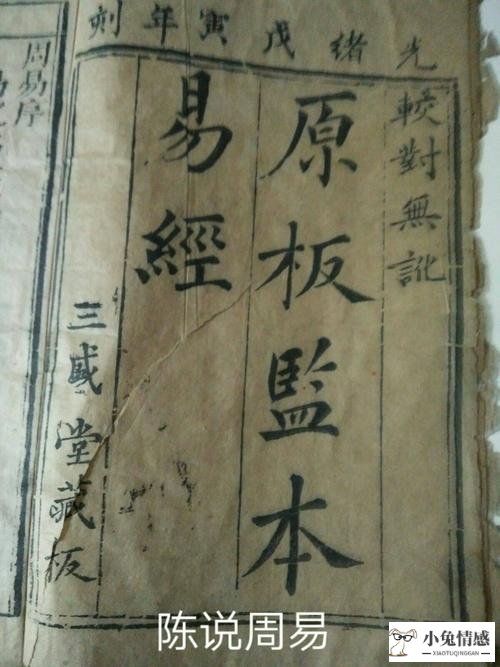 光緒戊寅年刻
較對無訛
原板監本
易經
三盛堂藏板
周易序
陈说周易
小兔情感
XIAOTUQINGGAN.COM